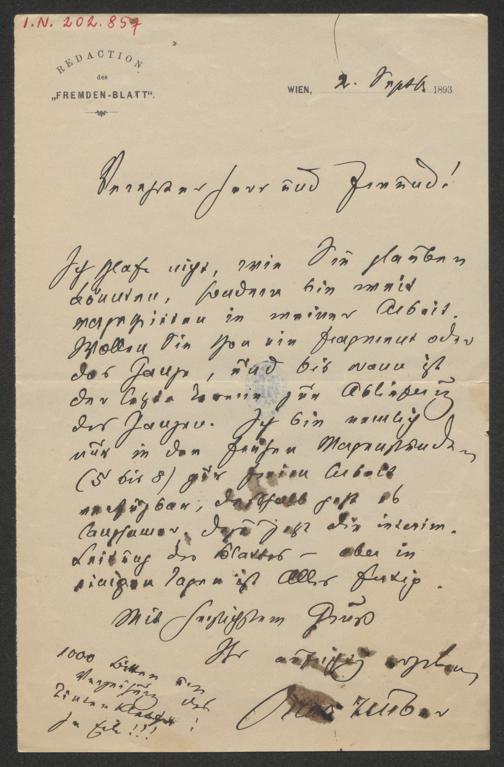 I.N. 202.857
REDACTION
des
„FREMDEN-BLATT“.
WIEN, 2. Sept. 1893
Verehrter Herr und Freund!
Ich schlafe nicht, wie Sie glauben
könnten, sondern bin weit
vorgeschritten in meiner Arbeit.
Wollen Sie schon ein Fragment oder
das Ganze, und bis wann ist
der letzte Termin zur Ablieferung
des Ganzen. Ich bin nemlich
nur in den frühen Morgenstunden
(5 bis 8) für freie Arbeit
verfügbar, deßhalb geht es
langsamer, dazu jetzt die interim.
Leitung des Blattes – aber in
einigen Tagen ist Alles fertig.
Mit herzlichstem Gruß
Ihr aufrichtig ergebener
Zeuber
1000 Bitten um
Verzeihung des
Tintenkleckses!
In Eile!!!